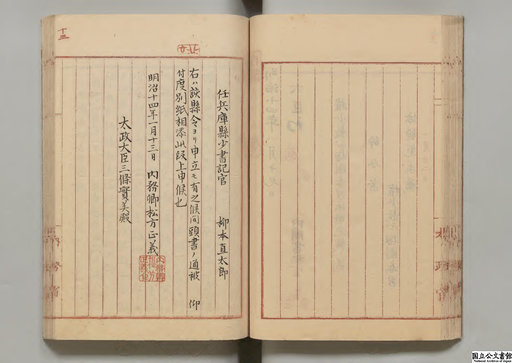 任兵庫縣少書記官　柳本直太郎
右ハ該縣令ヨリ申立モ有之候間頭書ノ通被　仰
付度別紙相添此段上申候也
明治十四年一月十三日　内務卿松方正義
太政大臣三條實美殿
十三
国立公文書館
National Archives of Japan